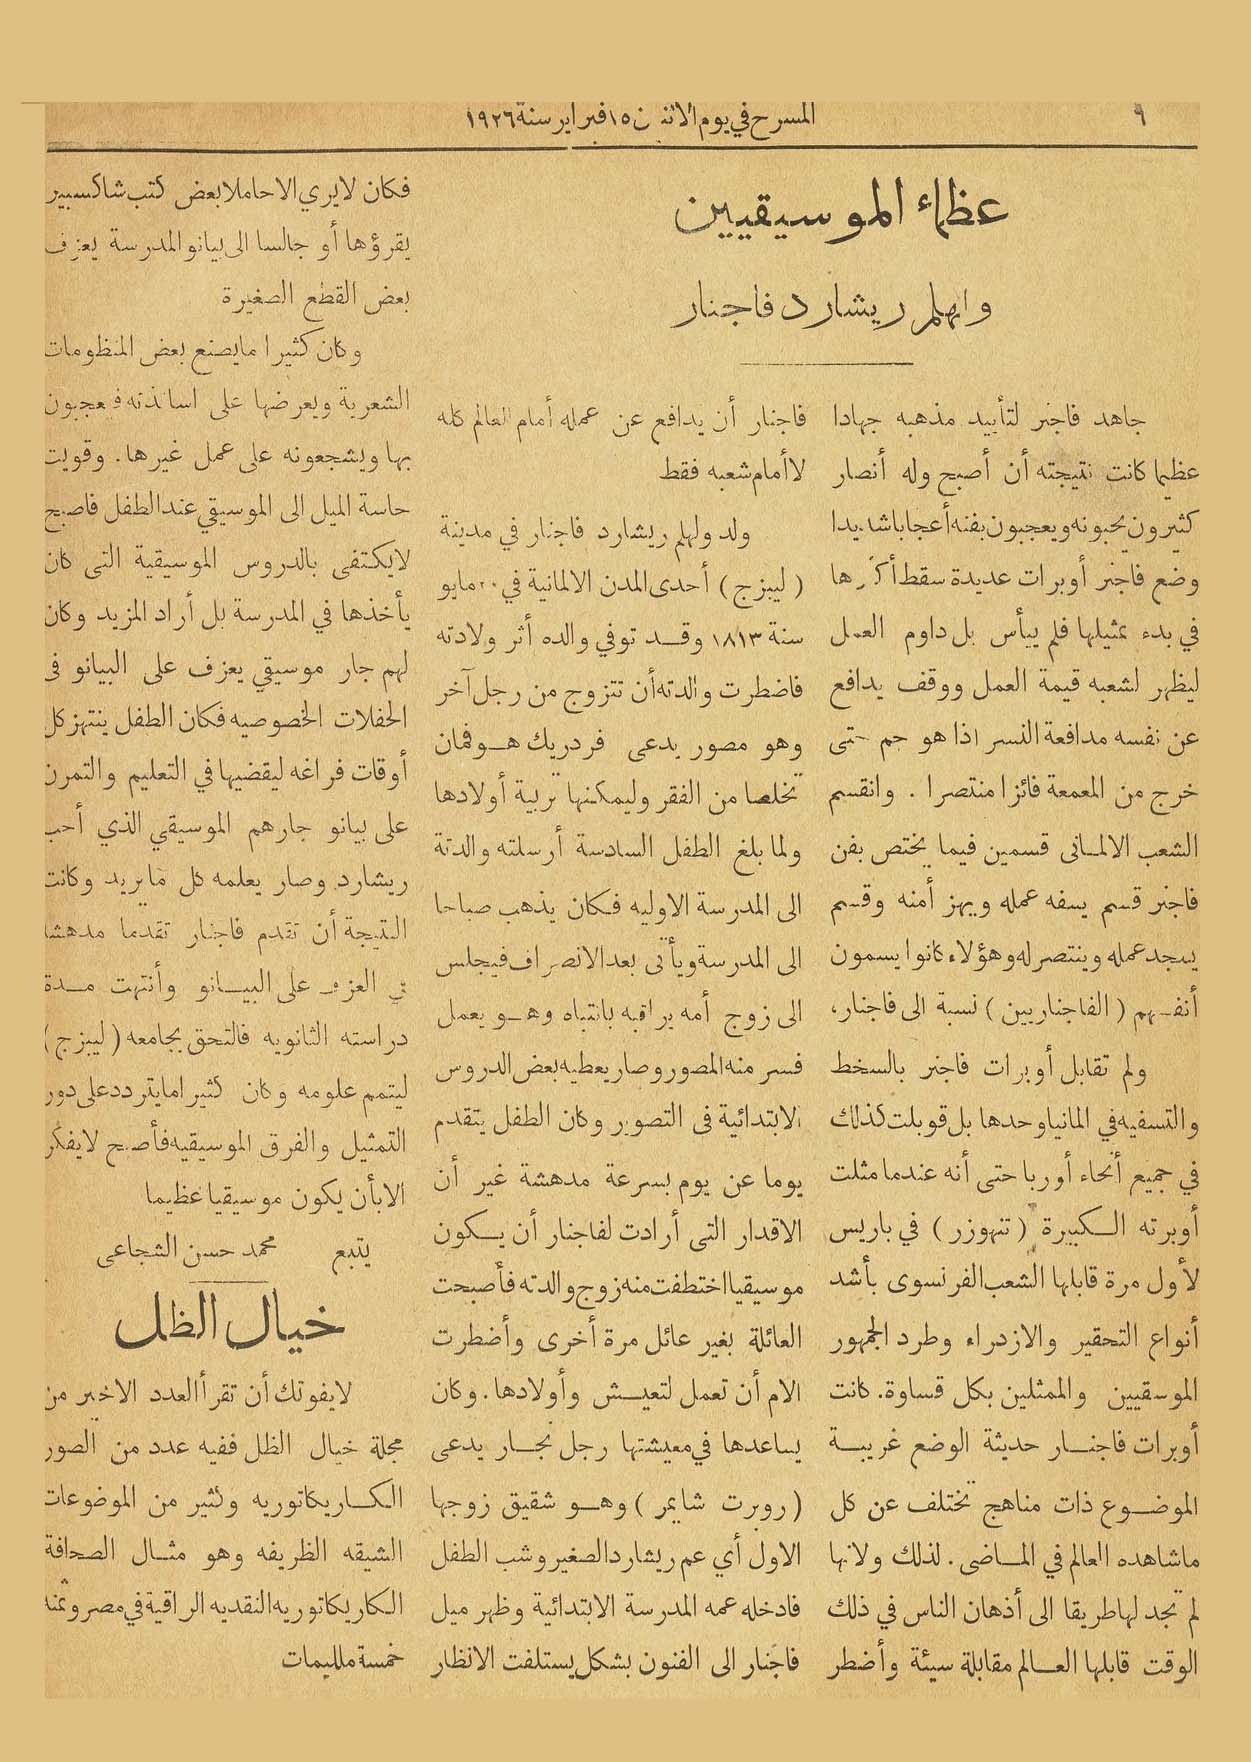 ٩
المسرح في يوم الاثنين ١٥ فبراير سنة ١٩٢٦
عظماء الموسيقيين
وايهلم ريشارد فاجنار
جاهد فاجنر لتأييد مذهبه جهادا
عظيما كانت نتيجته أن أصبح وله أنصار
كثيرون يحبونه ويعجبون بفنه أعجابا شديدا
وضع فاجنر أوبرات عديدة سقط أكثرها
في بدء تمثيلها فلم ييأس بل داوم العمل
ليظهر لشعبه قيمة العمل ووقف يدافع
عن نفسه مدافعة النسر اذا هو جم حتى
خرج من المعمعة فائزا منتصرا . وانقسم
الشعب الالمانى قسمين فيما يختص بفن
فاجنر قسم يسفه عمله ويهز أمنه وقسم
يمجد عمله وينتصر له وهؤلاء كانوا يسمون
أنفسهم ( الفاجناريين ) نسبة الى فاجنار،
ولم تقابل أوبرات فاجنر بالسخط
والتسفيه في المانيا وحدها بل قوبلت كذلك
في جميع أنحاء أوربا حتى أنه عندما مثلت
أوبرته الكبيرة ( تنهوزر ) في باريس
لأول مرة قابلها الشعب الفرنسوى بأشد
أنواع التحقير والازدراء وطرد الجمهور
الموسقيين والممثلين بكل قساوة. كانت
أوبرات فاجنار حديثة الوضع غريبة
الموضوع ذات مناهج تختلف عن كل
ماشاهده العالم في الماضى . لذلك ولانها
لم تجد لها طريقا الى أذهان الناس في ذلك
الوقت قابلها العالم مقابلة سيئة وأضطر
فاجنار أن يدافع عن عمله أمام العالم كله
لا أمام شعبه فقط
ولد ولهلم ريشارد فاجنار في مدينة
( ليبزج ) أحدى المدن الالمانية في مايو
سنة ١٨١٣ وقد توفي والده أثر ولادته
فاضطرت والدته أن تتزوج من رجل آخر
وهو مصور يدعى فردريك هوفمان
تخلصا من الفقر وليمكنها تربية أولادها
ولما بلغ الطفل السادسة أرسلته والدتة
الى المدرسة الاوليه فكان يذهب صباحا
الى المدرسة ويأتى بعد الانصراف فيجلس
الى زوج أمه يراقبه بانتباه وهو يعمل
فسر منه المصور وصار يعطيه بعض الدروس
الابتدائية فى التصوير وكان الطفل يتقدم
يوما عن يوم بسرعة مدهشة غير أن
الاقدار التى أرادت لفاجنار أن يكون
موسيقيا اختطفت منه زوج والدته فأصبحت
العائلة بغير عائل مرة أخرى وأضطرت
الام أن تعمل لتعيش وأولادها . وكان
يساعدها في معيشتها رجل نجار يدعى
( روبرت شايمر ) وهو شقيق زوجها
الاول أي عم ريشارد الصغير وشب الطفل
فادخله عمه المدرسة الابتدائية وظهر ميل
فاجنار الى الفنون بشكل يستلفت الانظار
فكان لايري الا حاملا بعض كتب شاكسبير
يقرؤها أو جالسا الى بيانو المدرسة يعزف
بعض القطع الصغيرة
وكان كثيرا مايصنع بعض المنظومات
الشعرية ويعرضها على اساتذته فيعجبون
بها ويشجعونه على عمل غيرها. وقويت
حاسة الميل الى الموسيقي عند الطفل فاصبح
لايكتفى بالدروس الموسيقية التى كان
يأخذها في المدرسة بل أراد المزيد وكان
لهم جار موسيقي يعزف على البيانو فى
الحفلات الخصوصيه فكان الطفل ينتهز كل
أوقات فراغه ليقضيها في التعليم والتمرن
على بيانو جارهم الموسيقي الذي أحب
ريشارد وصار يعلمه كل مايريد وكانت
النتيجة أن تقدم فاجنار تقدما مدهشا
في العزف على البيانو وأنتهت مدة
دراسته الثانويه فالتحق بجامعه ( ليبزج )
ليتمم علومه وكان كثيرا مايتردد على دور
التمثيل والفرق الموسيقيه فأصبح لايفكر
الا بأن يكون موسيقيا عظيما
يتبع محمد حسن الشجاعى
خيال الظل
لايفوتك أن تقرأ العدد الاخير من
مجلة خيال الظل ففيه عدد من الصور
الكاريكاتوريه وكثير من الموضوعات
الشيقه الظريفه وهو مثال الصحافة
الكاريكاتوريه النقديه الراقية في مصر وثمنه
خمسة ملليمات